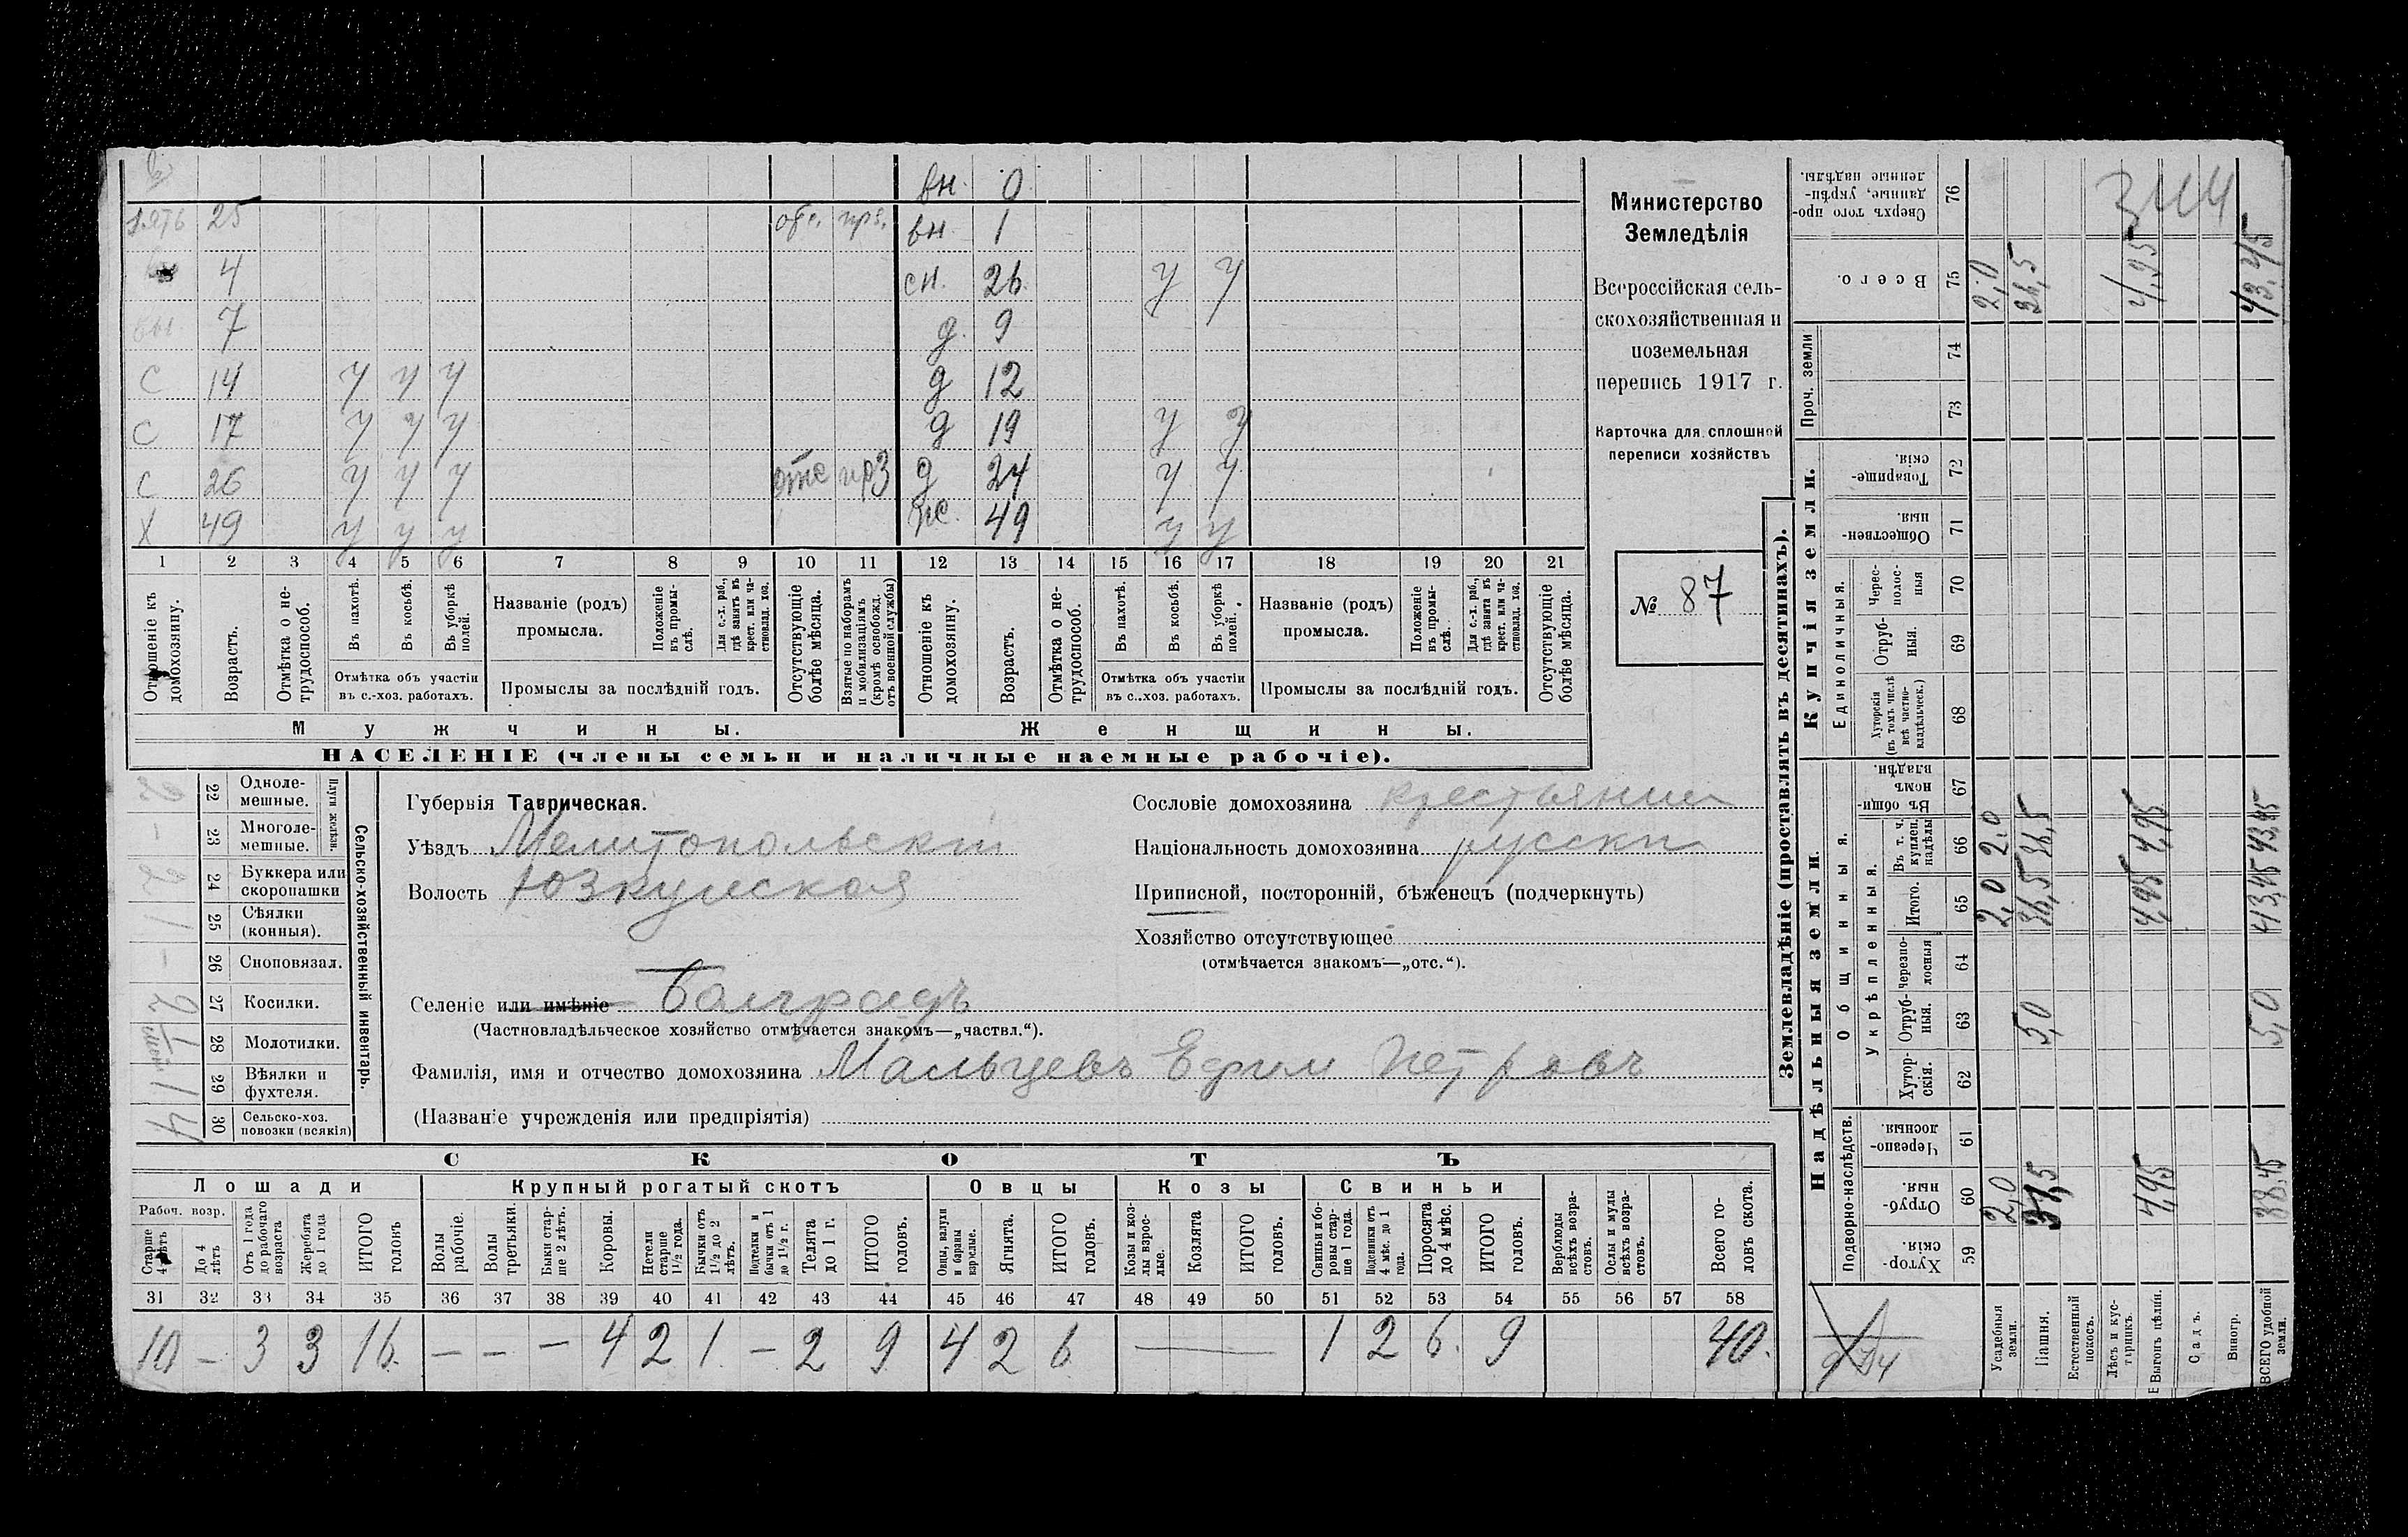 вн. 0
зять 25 отс. прз. вн. 1
4 сн. 26 у у
вн 7 д. 9
С 14 у у у д 12
С 17 у у у д 19 у у
С 26 у у у отс прз д 24 у у
Х 49 у у у жс. 49 у у
1 2 3 4 5 6 7 8 9 10 11 12 13 14 15 16 17 18 19 20 21
Отношеніе къ домохозяину.
Возрастъ.
Отмѣтка о не-
трудоспособ.
Въ пахотѣ.
Въ косьбѣ.
Въ уборкѣ полей.
Отмѣтка объ участіи
въ с.-хоз. работахъ.
Названіе (родъ)
промысла.
Положеніе въ промы-
слѣ.
Для с.-х. раб., гдѣ занятъ въ крест. или ча-
стновлад. хоз.
Промыслы за послѣдній годъ.
Отсутствующіе
болѣе мѣсяца.
Взятые по наборамъ
и мобилизаціямъ
(кромѣ освобожд.
отъ военной службы)
Отношеніе къ
домохозяину.
Возрастъ.
Отмѣтка о не-
трудоспособ.
Въ пахотѣ.
Въ косьбѣ.
Въ уборкѣ полей.
Отмѣтка объ участіи
въ с..хоз. работахъ.
Названіе (родъ)
промысла.
Положеніе въ промы-
слѣ.
Для с.-х. раб., гдѣ занята въ крест. или ча-
стновлад. хоз.
Промыслы за послѣдній годъ.
Отсутствующіе
болѣе мѣсяца.
Мужчины. Женщины.
НАСЕЛЕНІЕ (члены семьи и наличные наемные рабочіе).
Министерство
Земледѣлія
Всероссійская сель-
скохозяйственная и
поземельная
перепись 1917 г.
Карточка для сплошной
переписи хозяйствъ
№ 87
Сельско-хозяйственный инвентарь.
Плуги желѣзн.
22 Одноле-
мешные. 2
23 Многоле-
мешные. –
24 Буккера или
скоропашки 2
25 Сѣялки
(конныя). 1
26 Сноповязал. –
27 Косилки. 2
28 Молотилки. 1
29 Вѣялки и
фухтеля. 1
30 Сельско-хоз.
повозки (всякія) 4
Губернія Таврическая.
Уѣздъ Мелитопольскій
Волость Юзкуйская
Селеніе или имѣніе Болградъ
(Частновладѣльческое хозяйство отмѣчается знакомъ—„частвл.“).
Фамилія, имя и отчество домохозяина Мальцевъ Ефим Петровъ
(Названіе учрежденія или предпріятія)
Сословіе домохозяина крестьянин
Національность домохозяина русски
Приписной, посторонній, бѣженецъ (подчеркнуть)
Хозяйство отсутствующее
(отмѣчается знакомъ—„отс.“).
СКОТЪ
Лошади Крупный рогатый скотъ Овцы Козы Свиньи
Рабоч. возр.
Старше 4 лѣтъ
До 4 лѣтъ
Отъ 1 года до рабочаго возраста
Жеребята до 1 года
ИТОГО головъ
Волы рабочіе.
Волы третьяки.
Быки стар-
ше 2 лѣтъ.
Коровы.
Нетели старше 1½ года.
Бычки отъ 1½ до 2 лѣтъ.
Подтелки и бычки отъ 1 до 1½ г.
Телята до 1 г.
ИТОГО головъ.
Овцы, валухи и бараны взрослые.
Ягнята.
ИТОГО головъ.
Козы и коз-
лы взрос-
лые.
Козлята
ИТОГО головъ.
Свиньи и бо-
ровы стар-
ше 1 года.
Подсвинки отъ 4 мѣс. до 1 года.
Поросята до 4 мѣс.
ИТОГО головъ.
Верблюды всѣхъ возра-
стовъ.
Ослы и мулы всѣхъ возра-
стовъ.
Всего го-
ловъ скота.
31 32 33 34 35 36 37 38 39 40 41 42 43 44 45 46 47 48 49 50 51 52 53 54 55 56 57 58
10 – 3 3 16. – – – 4 2 1. – 2 9 4 2 6 — 1 2 6. 9 40.
Землевладѣніе (проставлять въ десятинахъ).
Надѣльныя земли. Купчія земли.
Подворно-наслѣдств.
Общинныя.
Укрѣпленныя.
Единоличныя.
Проч. земли
59 Хутор-
скія.
60 Отруб-
ныя.
61 Черезпо-
лосныя.
62 Хутор-
скія.
63 Отруб-
ныя.
64 Черезпо-
лосныя
65 Итого.
66 Въ т. ч. куплен. надѣлы
67 Въ общи-
номъ владѣн.
68 Хуторскія (въ томъ числѣ всѣ частно-
владѣльческ.)
69 Отруб-
ныя.
70 Черес-
полос-
ныя
71 Обществен-
ныя.
72 Товарище-
скія.
73 74
75 Всего.
76 Сверхъ того про-
данные, укрѣп-
ленные надѣлы.
Усадебныя земли. 2,0 2,0 2,0 2,0
Пашня. 5,0 36,5 36,5
Естественный покосъ.
Лѣсъ и кус-
тарникъ.
Выгонъ цѣлин. 4,95 4,95 4,95 4,95
Садъ.
Виногр.
ВСЕГО удобной земли. 38,45 5,0 43,45 43,45 43,45